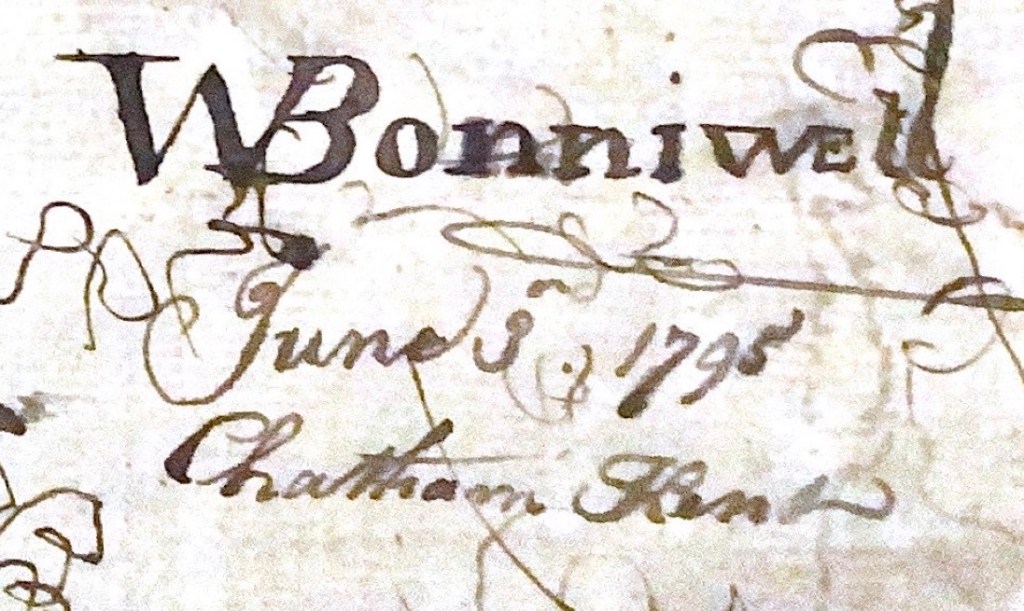 WBonniwell
June 3, 1795
Chatham Kent